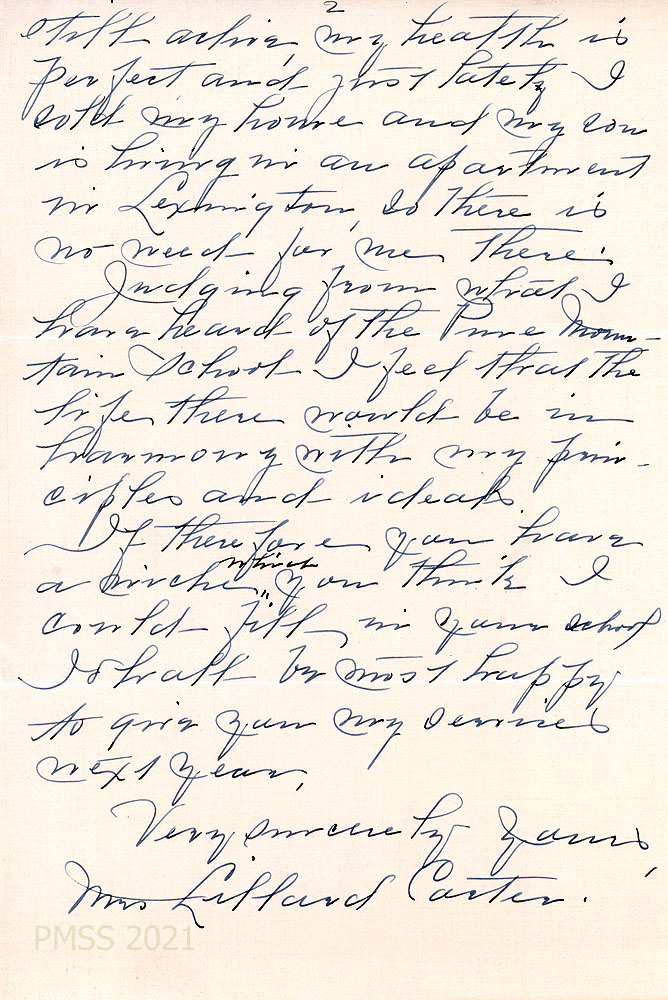 2
still active, my health is
perfect and just lately I
sold my home and my son
is living in an apartment
in Lexington, so there is
no need for me there.
Judging from what I
have heard of the Pine Moun-
tain School I feel that the
life there would be in
harmony with my prin-
ciples and ideals.
If therefore you have
a niche which you think I
could fill in your school
I shall be most happy
to give you my services
next year.
Very sincerely yours,
Mrs Lillard Carter.
PMSS 2021